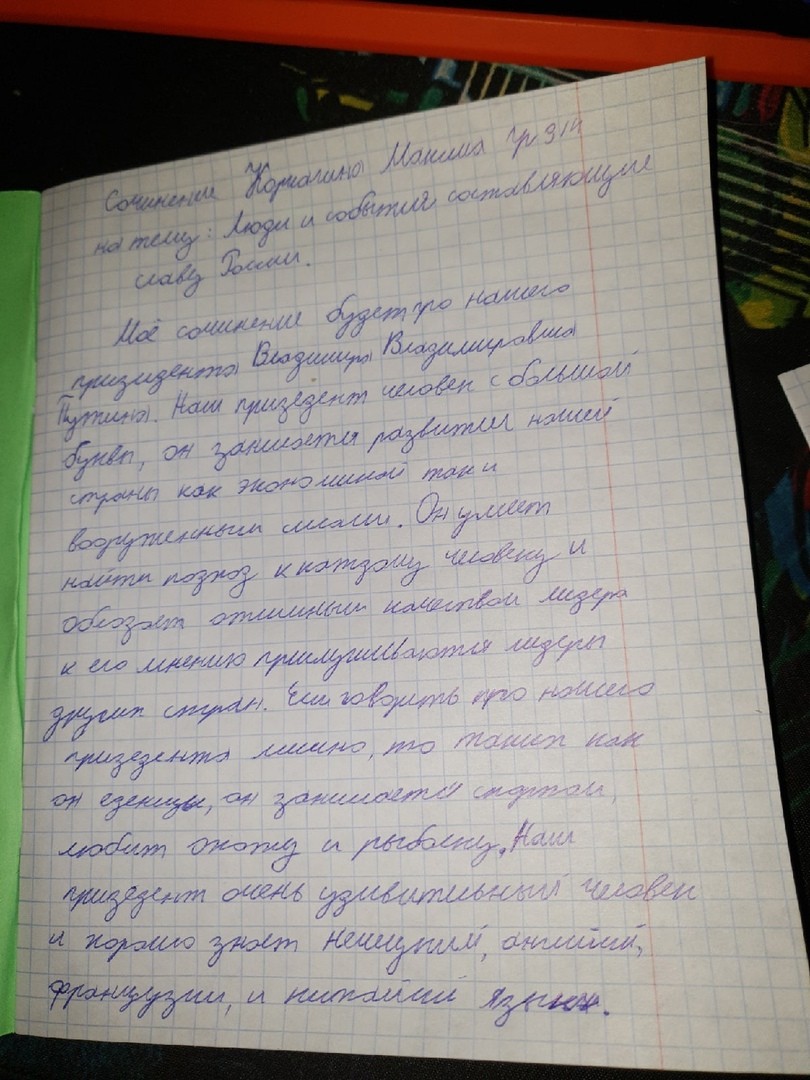 Сочинение Корчагина Максима гр 31
на тему: Люди и события составляющие
славу России.
Моё сочинение будет про нашего
призидента Владимира Владимировича
Путина. Наш призедент человек с большой
буквы, он занимается развитием нашей
страны как экономикой так и
вооруженными силами. Он умеет
найти подход к каждому человеку и
обладает отличным качеством лидера
к его мнению прислушиваются лидеры
других стран. Если говорить про нашего
призедента лично, то таких как
он еденицы, он занимается спортом,
любит охоту и рыбалку. Наш
призедент очень удивительный человек
и хорошо знает немецкий, английй,
французкий, и китайкий языки.